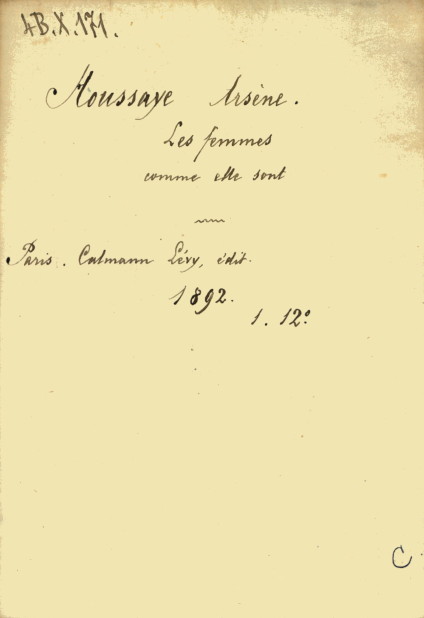 4B.X.171.
Houssaye Arsène.
Les femmes
comme elle sont
Paris. Calmann Lévy, édit.
1892.
1. 12º
C